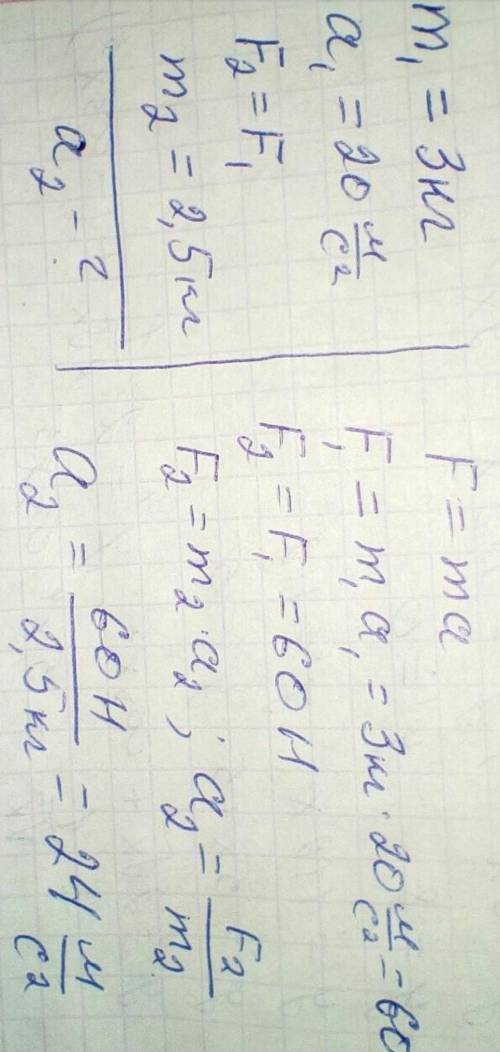 m₁ = 3 кг
a₁ = 20 м/с²
F₂ = F₁
m₂ = 2,5 кг
a₂ - ?
F = ma
F₁ = m₁a₁ = 3 кг · 20 м/с² = 60
F₂ = F₁ = 60 Н
F₂ = m₂ · a₂ ; a₂ = F₂/m₂
a₂ = 60 Н/2,5 кг = 24 м/с²